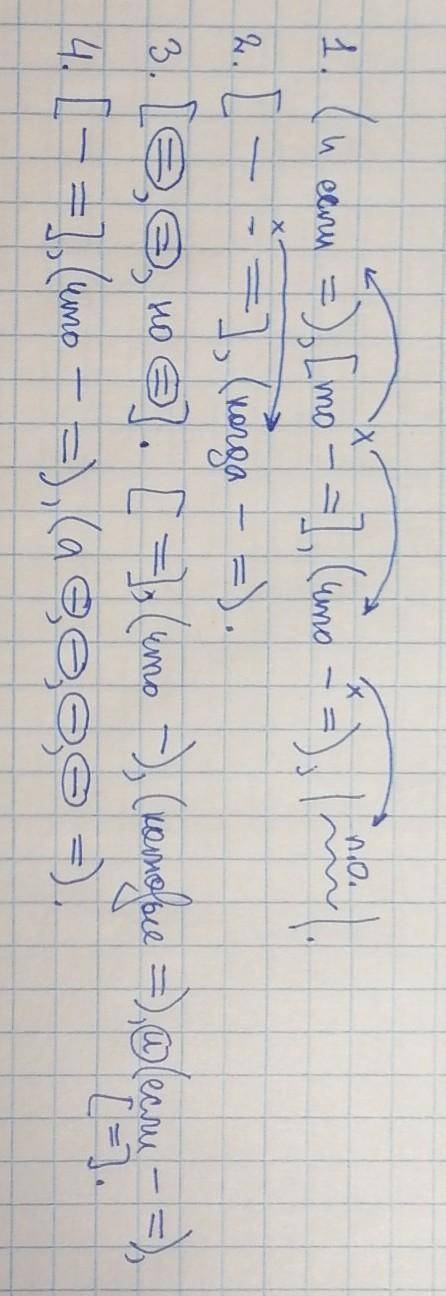 1. (и если =), [то – =], (что – =), |п.о.|.
2. [ – - =], (когда – =).
3. [=, =, но =]. [ =], (что –), (которые =), и (если – =),
[ =].
4. [ – =], (что – =), (а –, –, –, – =).